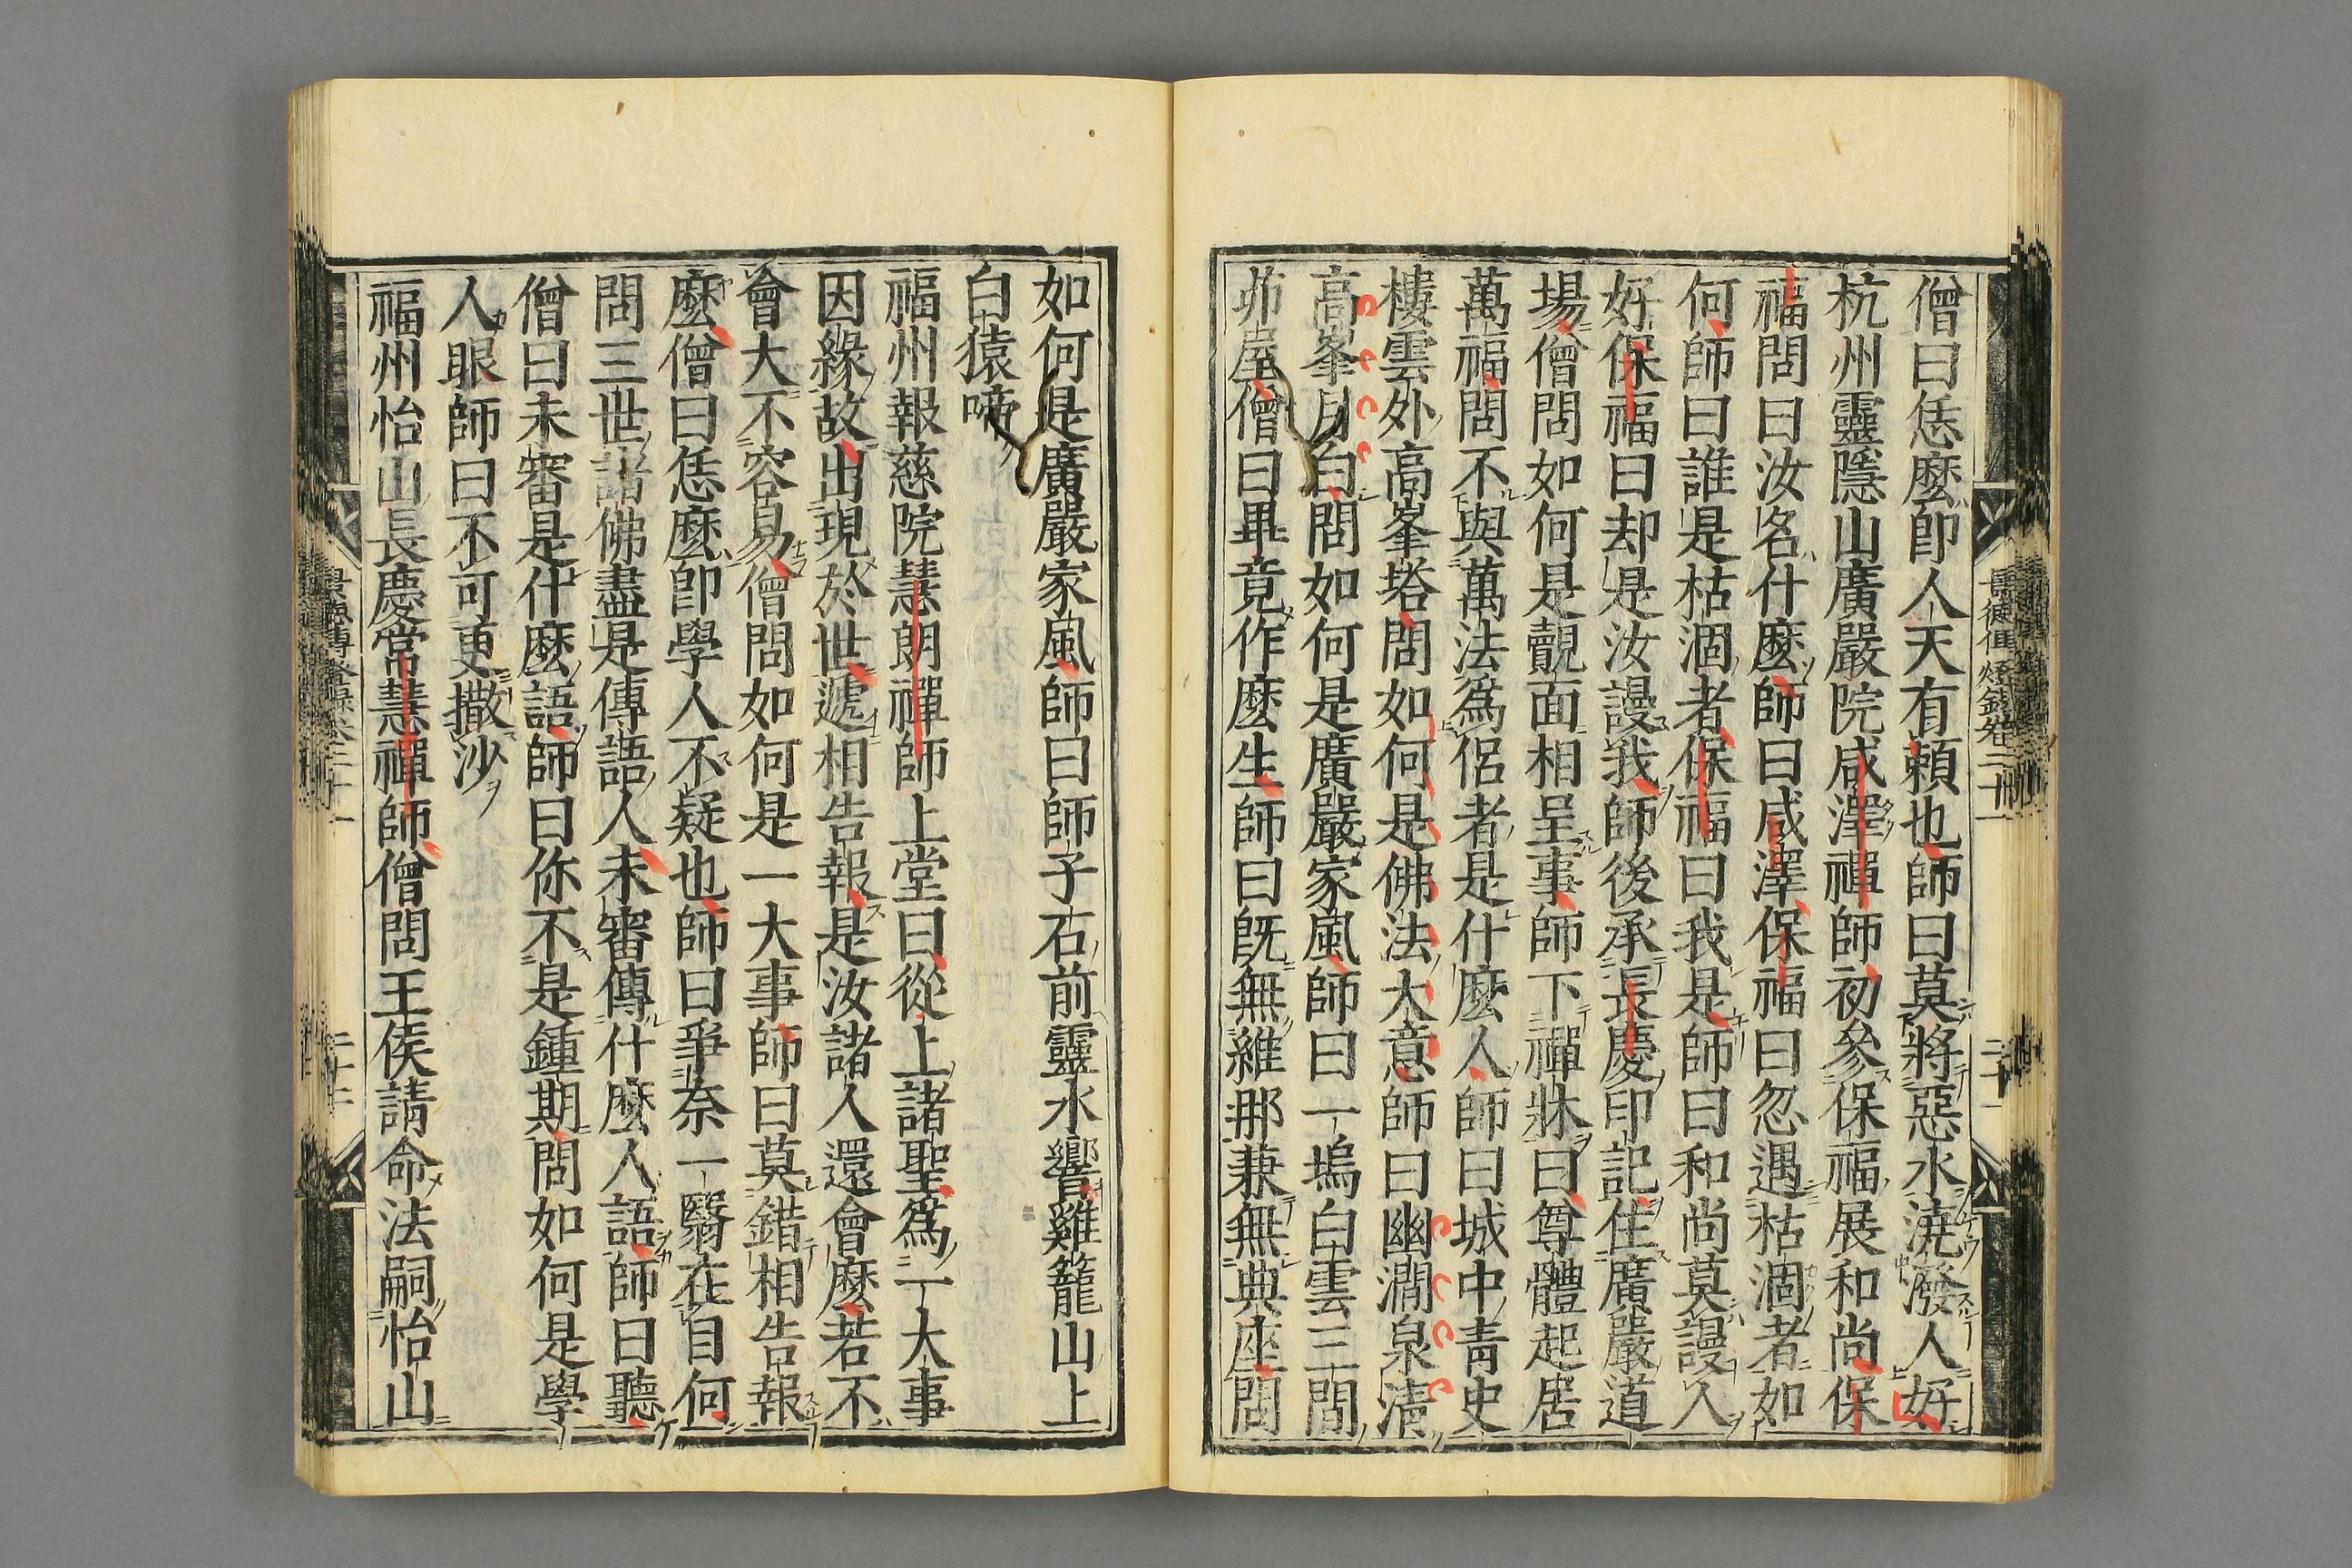 僧曰恁麼卽人天有賴也師曰莫將惡水澆潑人好
杭州靈隱山廣嚴院咸澤禪師初參保福展和尚保
福問曰汝名什麼師曰咸澤保福曰忽遇枯涸者如
何師曰誰是枯涸者保福曰我是師曰和尚莫謾人
好保福曰却是汝謾我師後承長慶印記住廣嚴道
場僧問如何是覿面相呈事師下禪牀曰尊體起居
萬福問不與萬法爲侶者是什麼人師曰城中青史
樓雲外高峯塔問如何是佛法大意師曰幽澗泉清
高峯月白問如何是廣嚴家風師曰一塢白雲三間
茆屋僧曰畢竟作麼生師曰旣無維那兼無典座問
如何是廣嚴家風師曰師子石前靈水響雞籠山上
白猿啼
福州報慈院慧朗禪師上堂曰從上諸聖爲一大事
因緣故出現於世遞相告報是汝諸人還會麼若不
會大不容易僧問如何是一大事師曰莫錯相告報
麼僧曰恁麼卽學人不疑也師曰爭奈一翳在目何
問三世諸佛盡是傳語人未審傳什麼人語師曰聽
僧曰未審是什麼語師曰你不是鍾期問如何是學
人眼師曰不可更撒沙
福州怡山長慶常慧禪師僧問王侯請命法嗣怡山
景德傳燈錄卷二十一
二十二